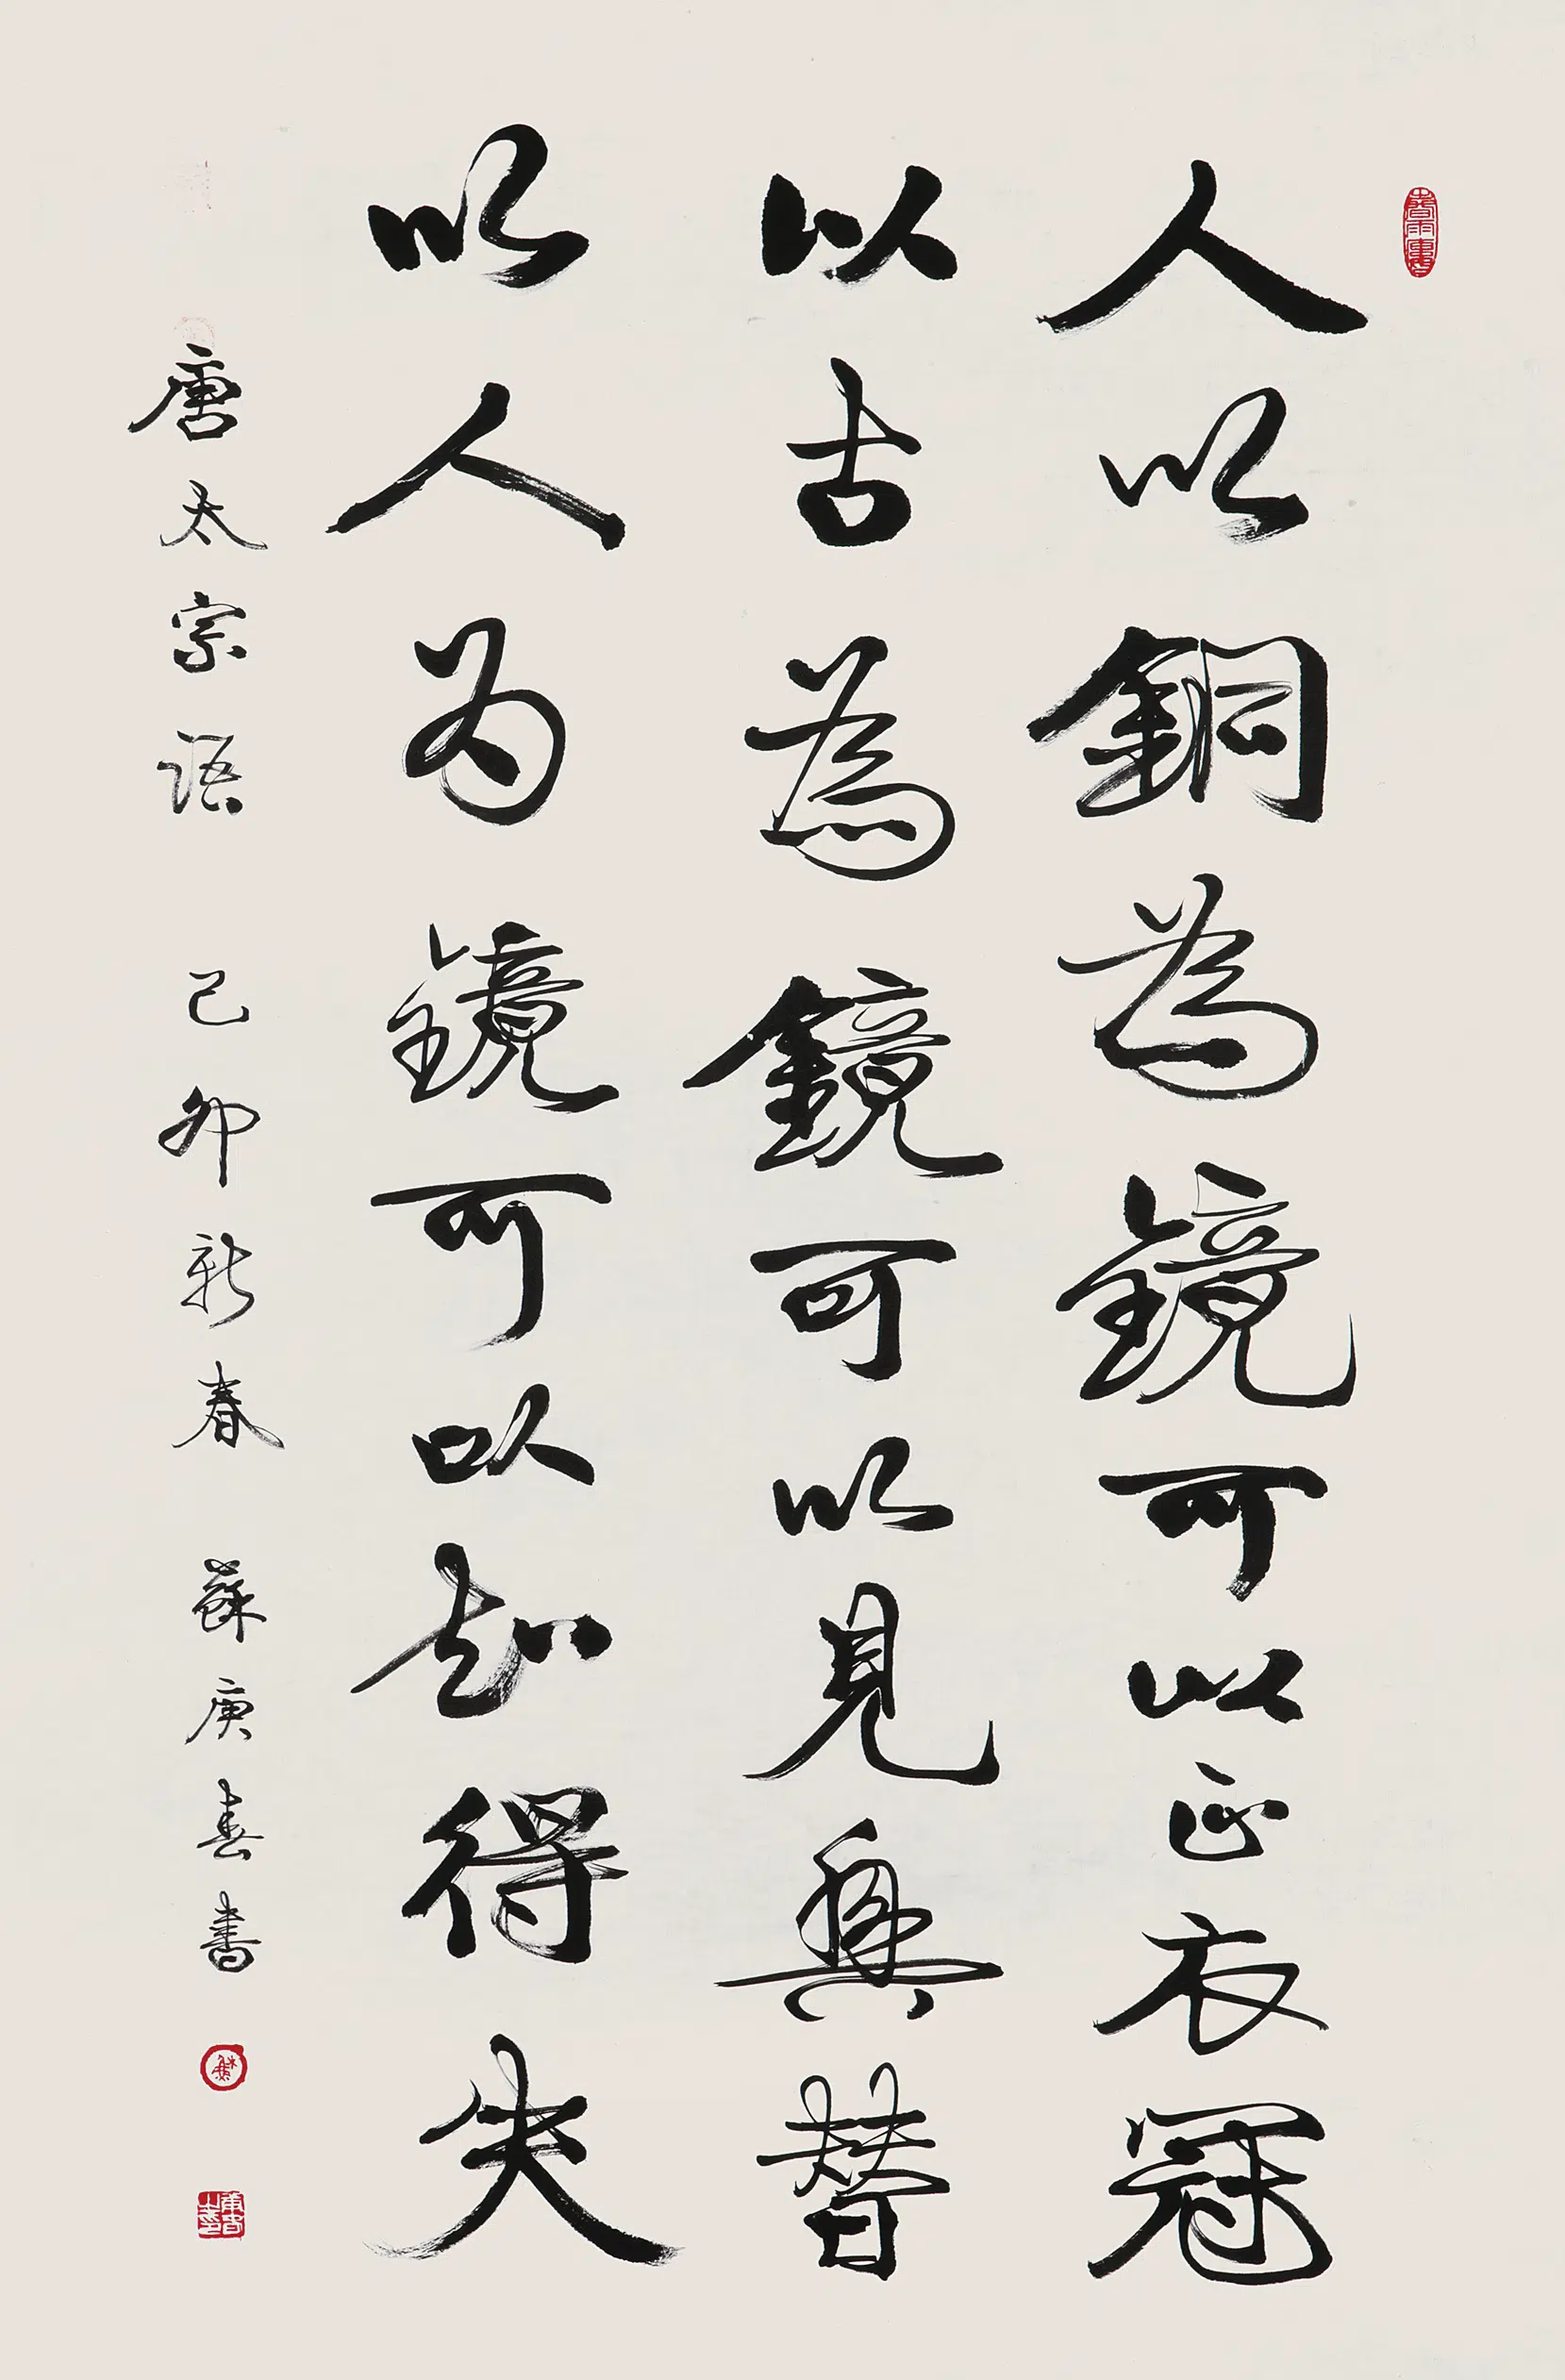 人以銅為鏡可以正衣冠
以古為鏡可以見興替
以人为鏡可以知得失
唐太宗語 己卯新春 蘇庚春書